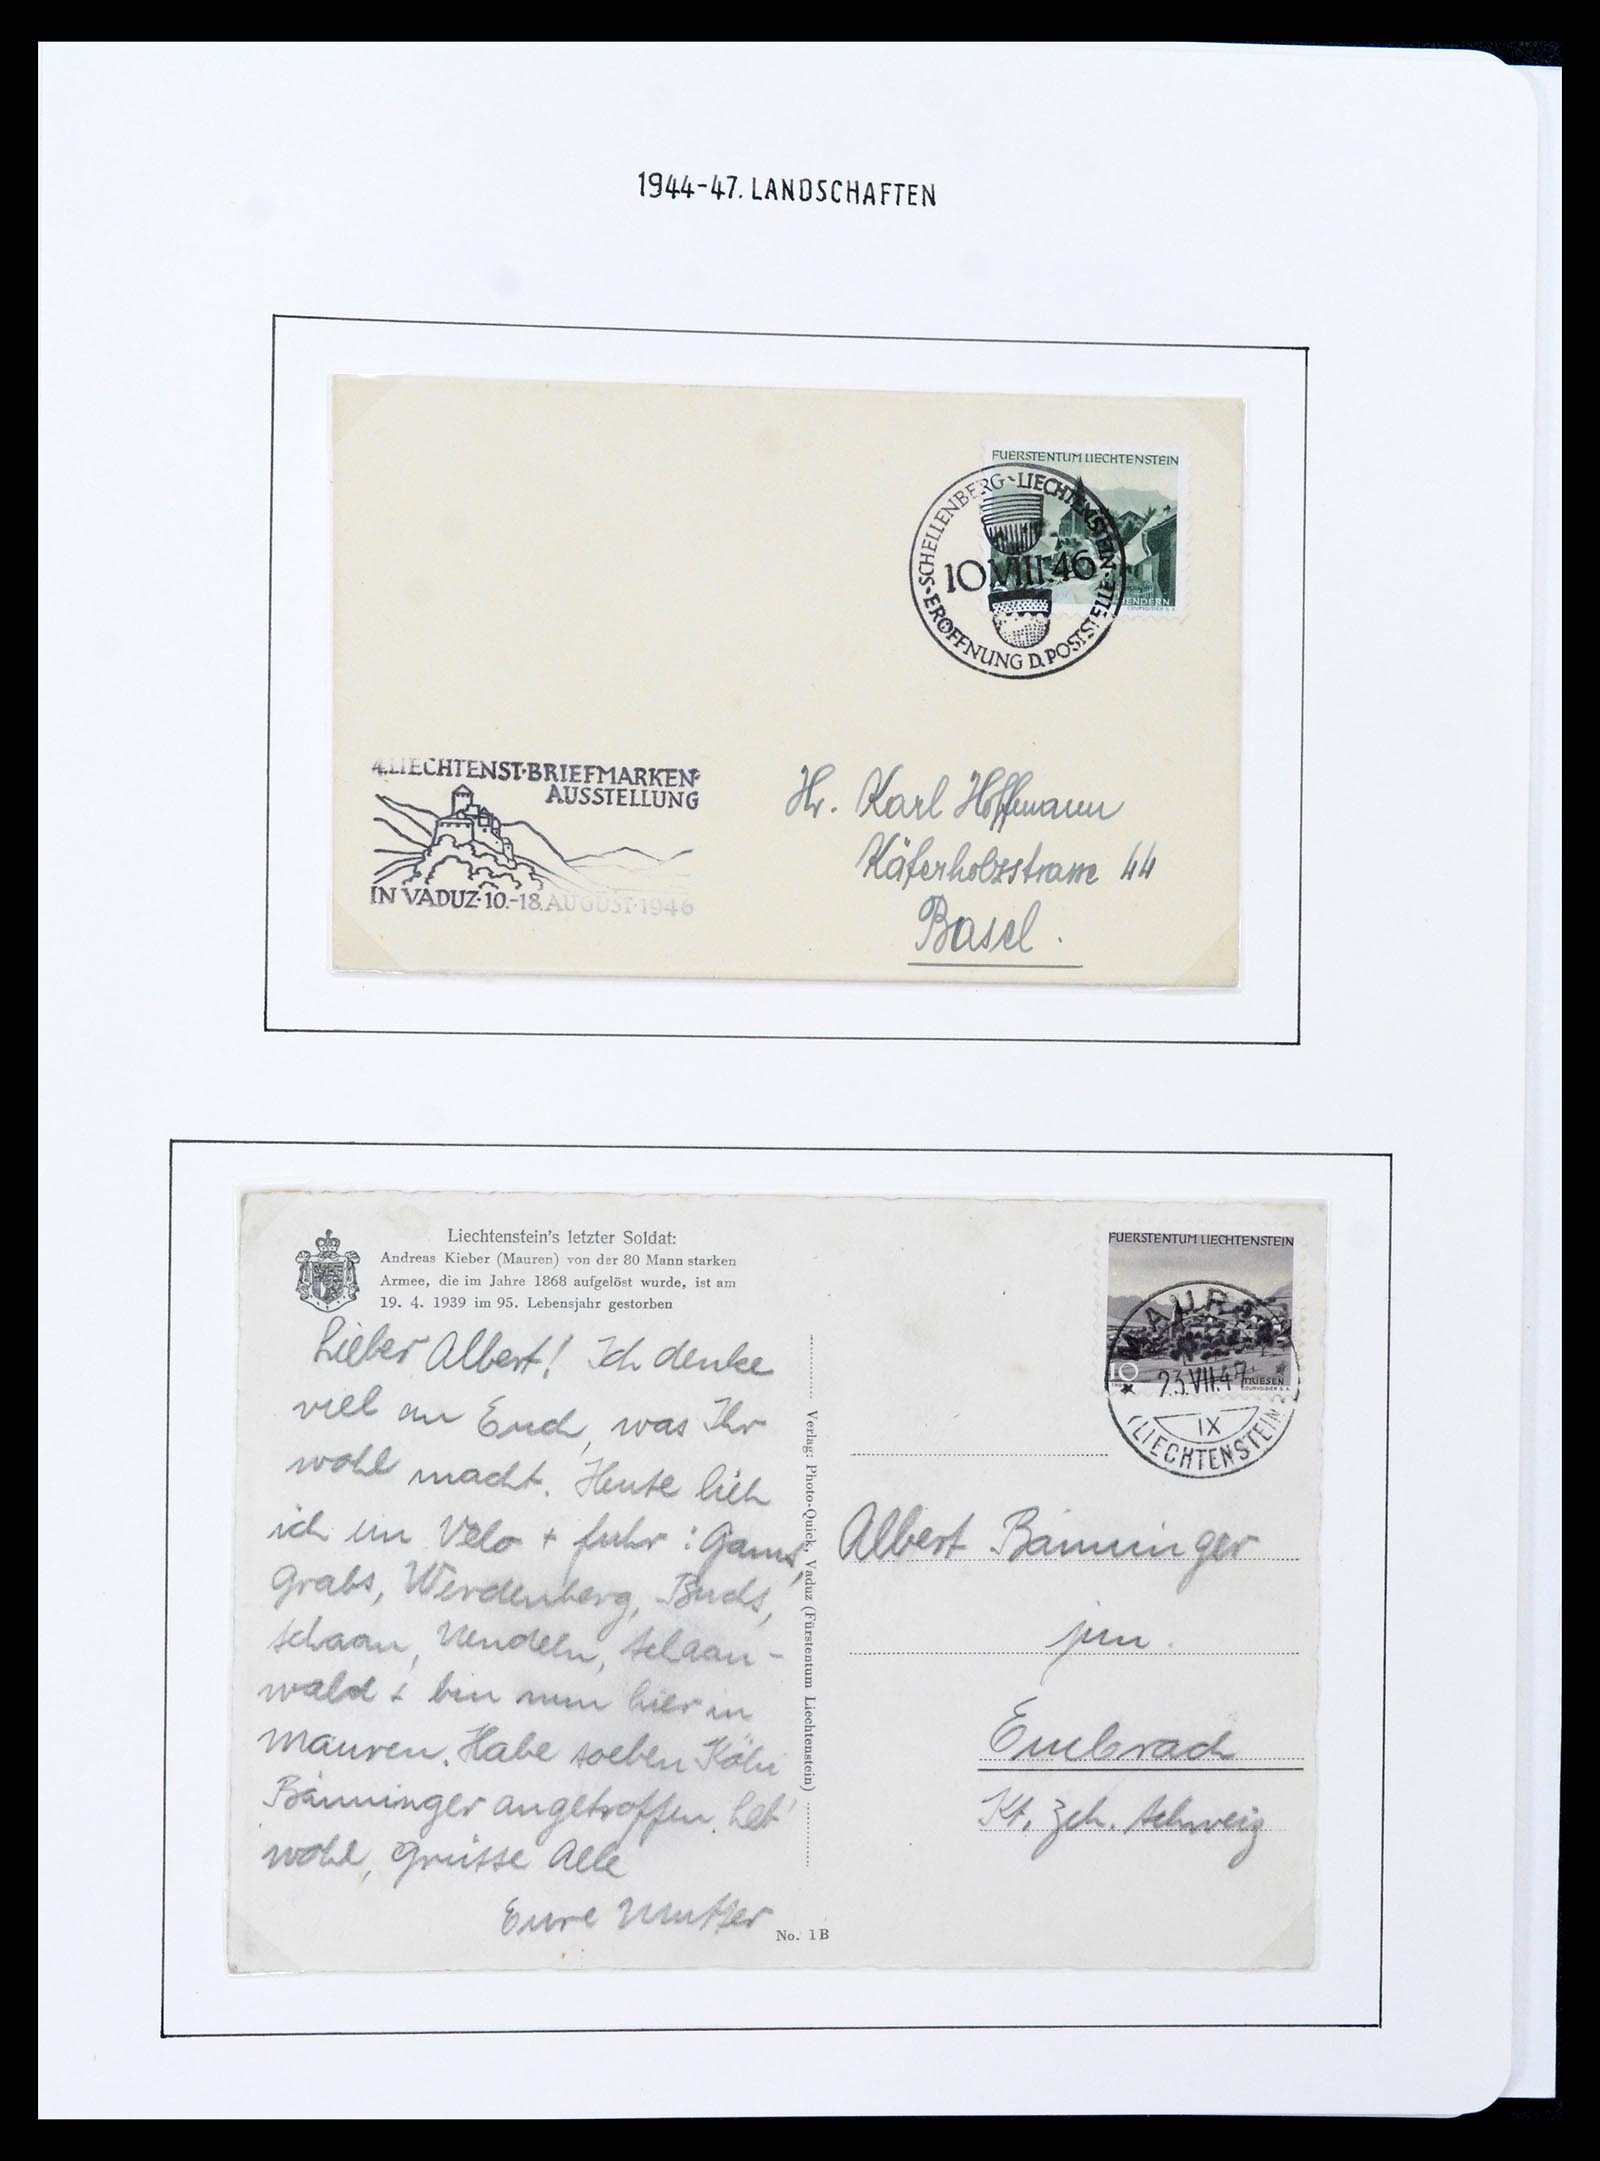 1944-47. LANDSCHAFTEN
FUERSTENTUM LIECHTENSTEIN
·SCHELLENBERG·LIECHTENSTEIN·
10 VIII.46
ERÖFFNUNG D. POSTSTELLE
BENDERN
COURVOISIER S.A.
4. LIECHTENST·BRIEFMARKEN-
AUSSTELLUNG
IN VADUZ·10.-18. AUGUST·1946
Hr. Karl Hoffmann
Käferholzstrasse 44
Basel.
Liechtenstein's letzter Soldat:
Andreas Kieber (Mauren) von der 80 Mann starken
Armee, die im Jahre 1868 aufgelöst wurde, ist am
19. 4. 1939 im 95. Lebensjahr gestorben
Lieber Albert! Ich denke
viel an Euch, was Ihr
wohl macht. Heute lieh
ich ein Velo + fuhr: Gams,
Grabs, Werdenberg, Buchs,
Schaan, Nendeln, Schaan-
wald + bin nun hier in
Mauren. Habe soeben
Bänninger angetroffen. Leb'
wohl, Grüsse Alle
Eure Mutter
Verlag: Photo-Quick, Vaduz (Fürstentum Liechtenstein)
No. 1B
FUERSTENTUM LIECHTENSTEIN
10
TRIESEN
COURVOISIER S.A.
MAUREN
23.VII.47
IX
(LIECHTENSTEIN)
Albert Bänninger
jun.
Embrach
Kt. Zch. Schweiz